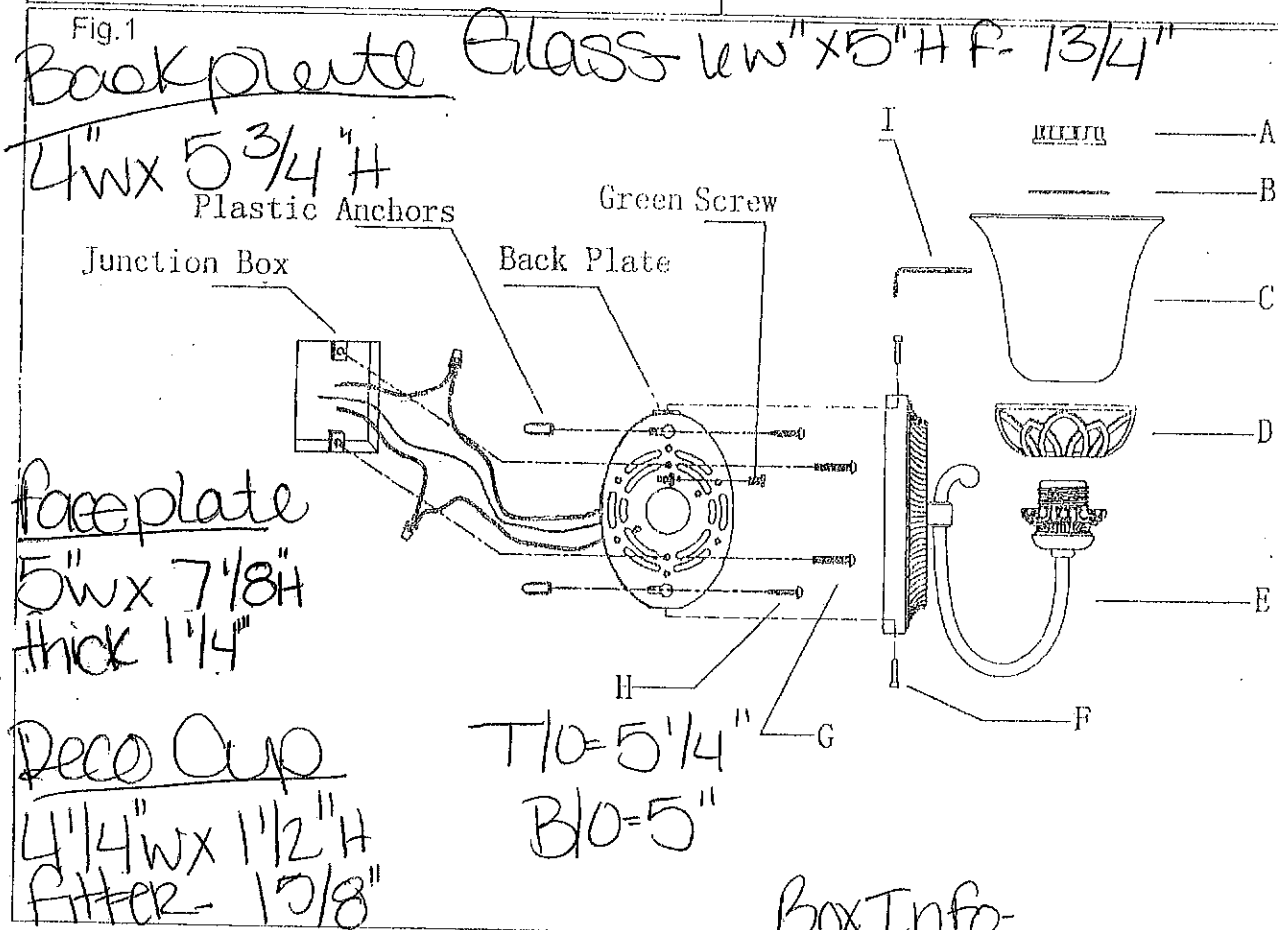 Fig.1
Backplate Glass- 6w"x5"H F- 1 3/4"
4"wx 5 3/4"H
I
A
B
Plastic Anchors
Green Screw
Junction Box
Back Plate
C
D
faceplate
5"wx 7 1/8H
thick 1 1/4"
E
H
G
F
Deco Cup
4 1/4"wx 1 1/2"H
fitter- 1 5/8"
T/O=5 1/4"
B/O=5"
Box Info-